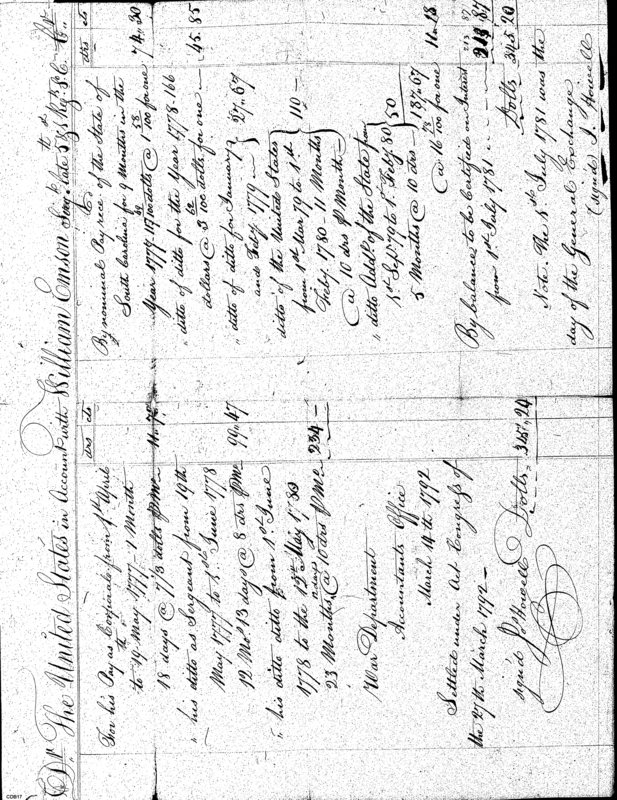 Dr The United States in Account with William Emson Serjt late 5th Regt S.C. Cr
drs cts
For his Pay as Corporal from 1st April
to 19th May 1777. 1 Month
18 days @ 7 1/3 dolls P Mo 11.73
" his ditto as Sergeant from 19th
May 1777 to 1st June 1778
12 Mos 13 days @ 8 drs P Mo 99.47
" his ditto ditto from 1st June
1778 to the 12th May 1780
23 Months @ 10 drs P Mo 234 –
War Department
Accountants Office
March 14th 1792
Settled under Act Congress of
the 27th March 1792 –
signd Js Howell
Dolls 345.20
drs cts
By nominal Pay recd of the State of
South Carolina for 9 Months in the
Year 1777 dolls @ 100 for one 74.30
" ditto of ditto for the Year 1778. 166
dollars @ 3 100 dolls for one 45.85
" ditto of ditto for January
and Feby 1779 27.67
ditto of the United States
from 1st Mar 79 to 1st
Feby 1780 11 Months
@ 10 drs P Month 110 –
" ditto Addl of the State from
1st Sep 79 to 1st Feby 80
5 Months @ 10 drs 50
187.67
@ 16 100 for one 11.18
By balance to be Certified on Interest
from 1st July 1781 213 87
213 87
Dolls 345 20
Note. The 1st July 1781 was the
day of the General Exchange
(signd) J. Howell
CD817